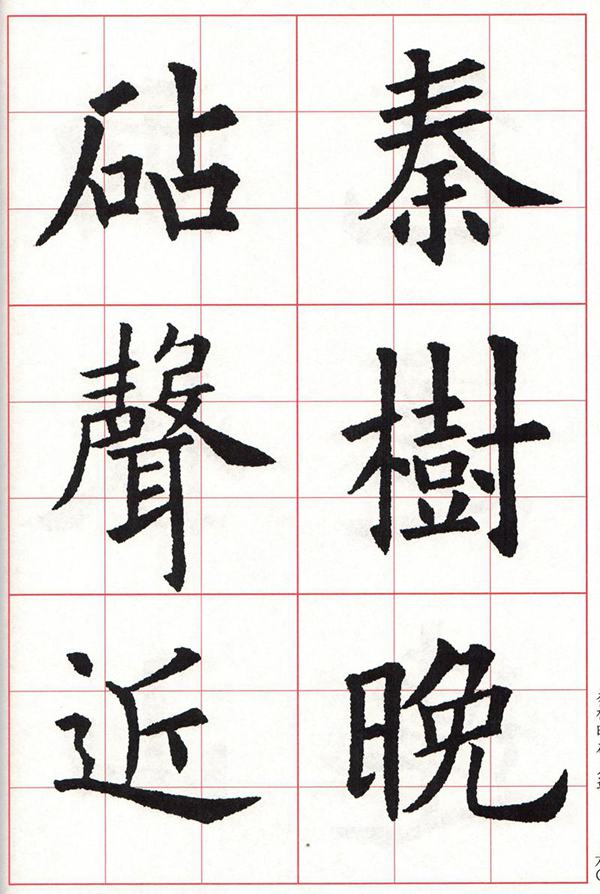 秦樹晚
砧聲近